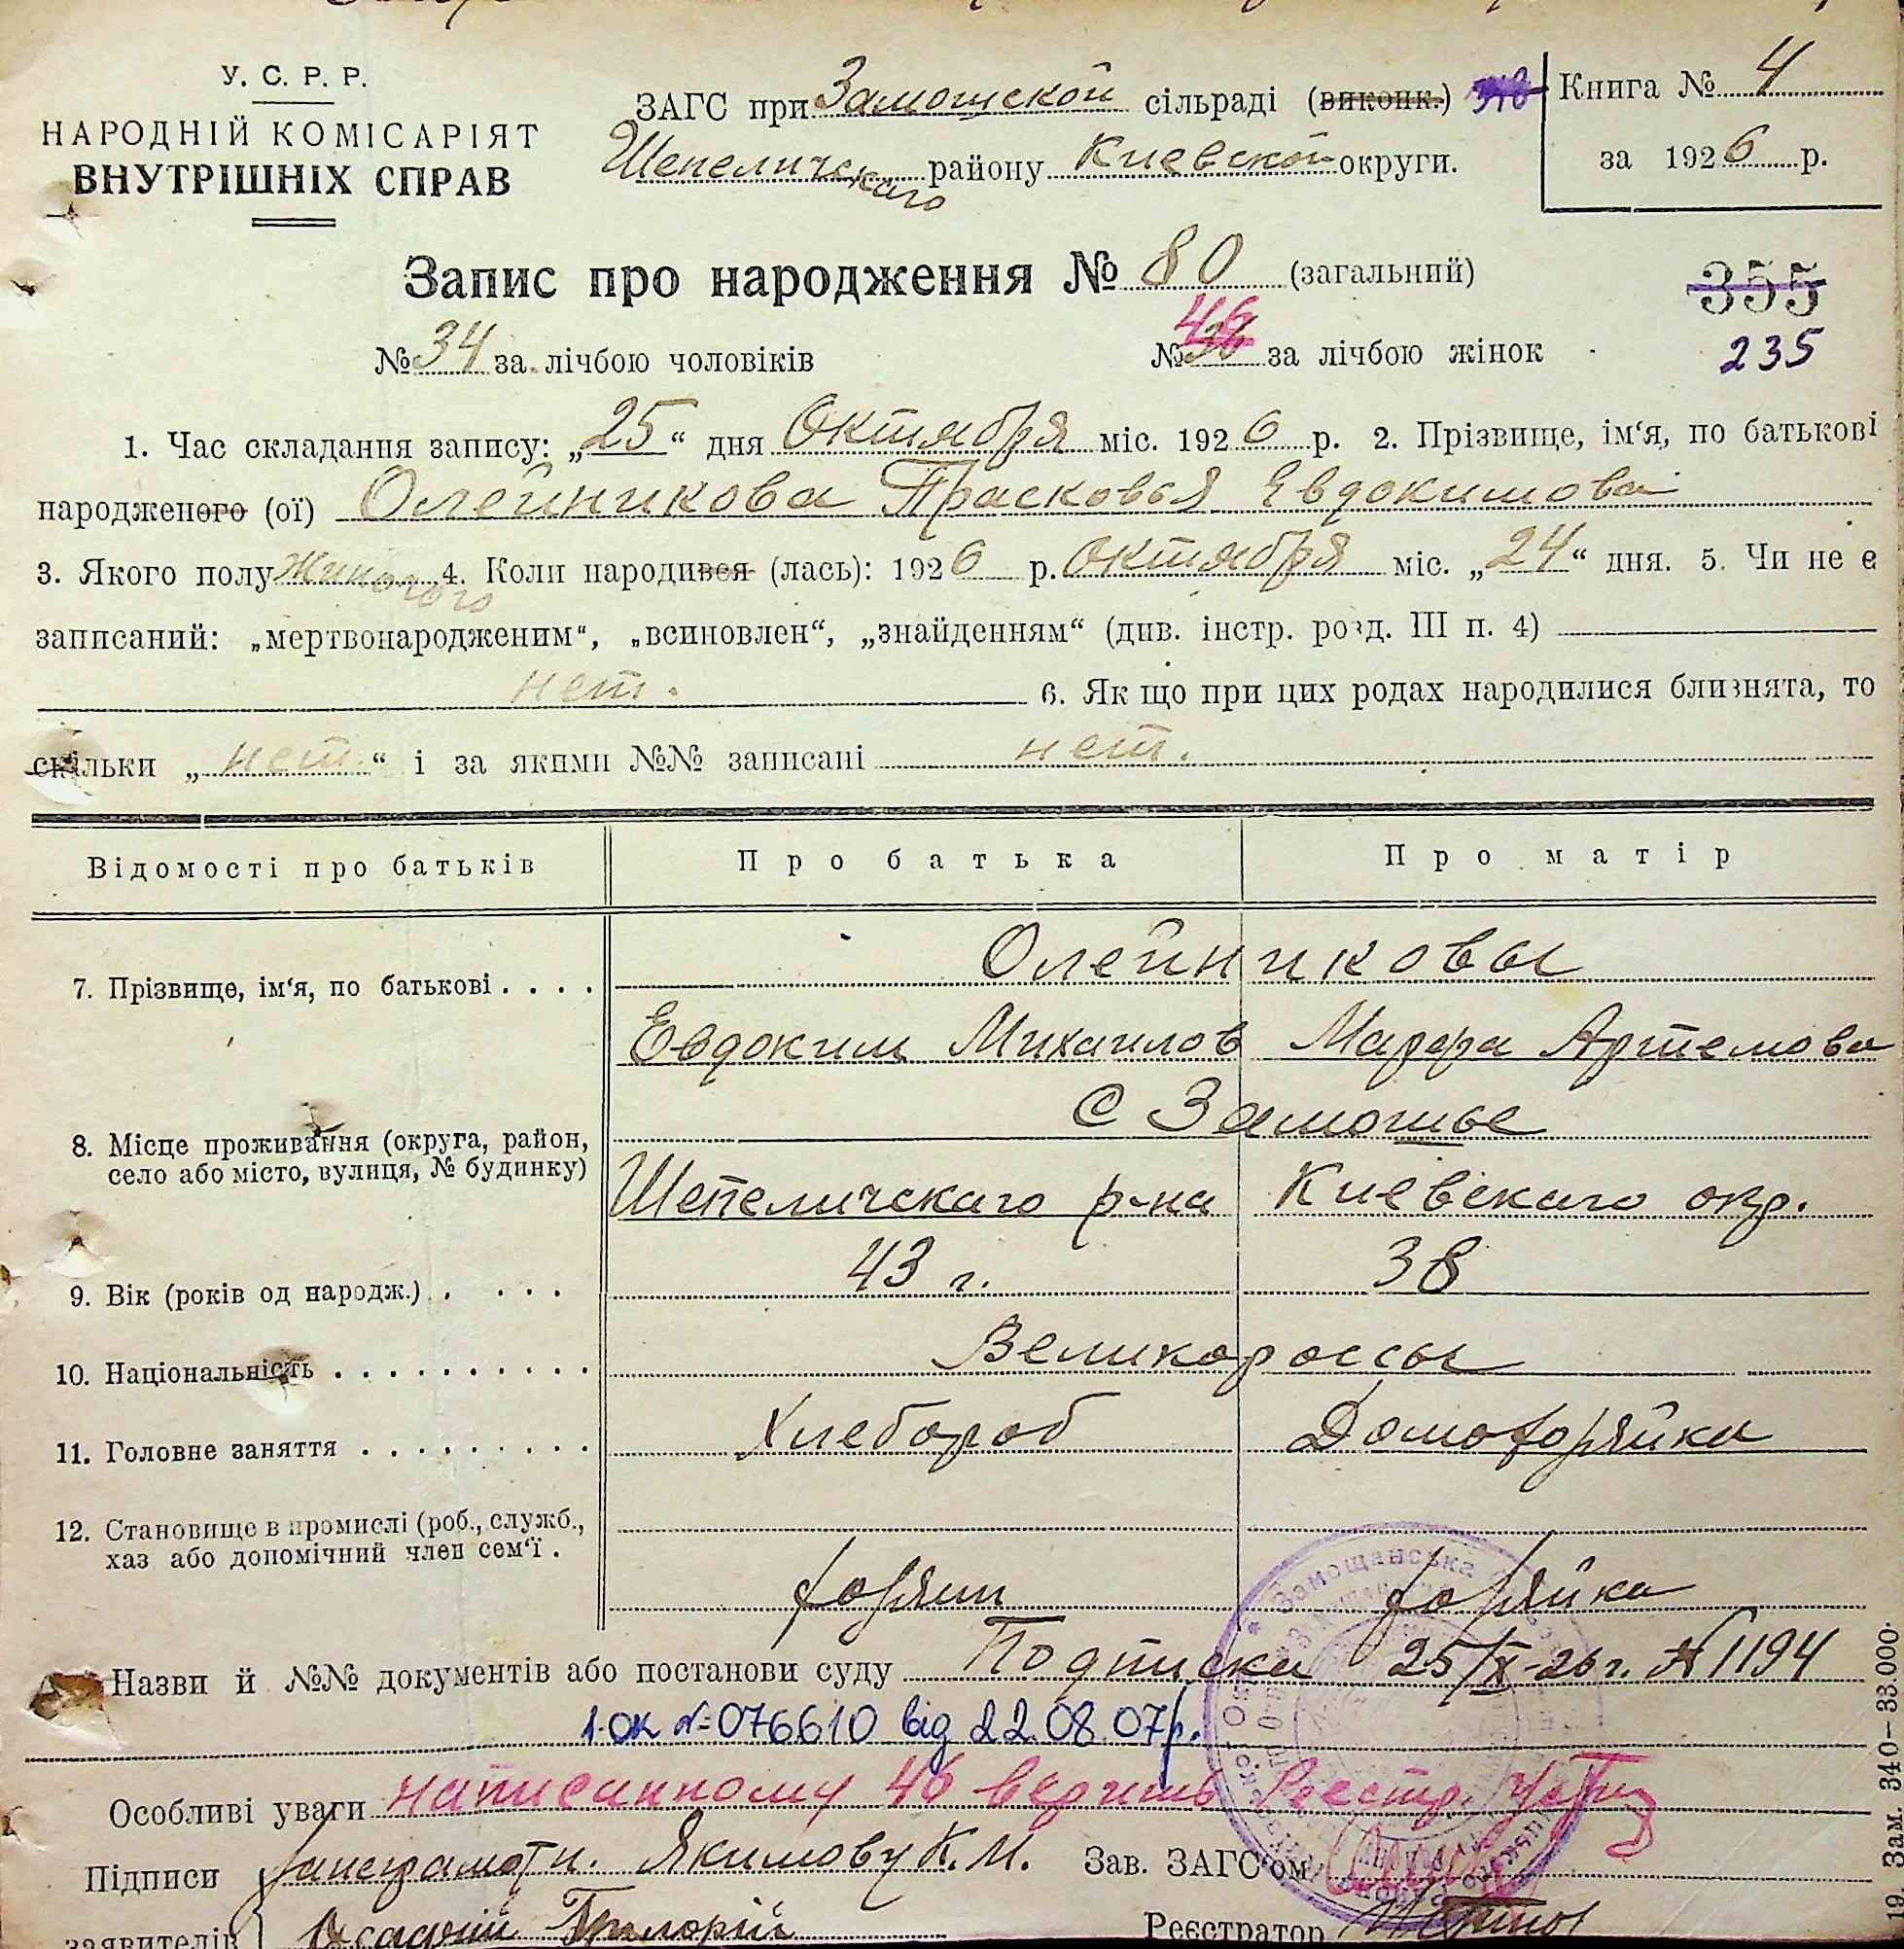 У. С. Р. Р.
НАРОДНІЙ КОМІСАРІЯТ
ВНУТРІШНІХ СПРАВ
ЗАГС при Замошской сільраді (виконк.)
Шепеличскаго району Киевской округи.
Книга № 4
за 1926 р.
Запис про народження № 80 (загальний)
355
№ 34 за лічбою чоловіків № 46 за лічбою жінок
235
1. Час складання запису: „25“ дня Октября міс. 1926 р. 2. Прізвище, ім‘я, по батькові
народженого (ої) Олейникова Прасковья Евдокимова
3. Якого полу 4. Коли народився (лась): 1926 р. Октября міс. „24“ дня. 5. Чи не є
записаний: „мертвонародженим“, „всиновлен“, „знайденням“ (див. інстр. розд. III п. 4)
нет. 6. Як що при цих родах народилися близнята, то
скільки „нет.“ і за якими №№ записані нет.
Відомості про батьків Про батька Про матір
7. Прізвище, ім‘я, по батькові . . . . Олейниковы
Евдоким Михаилов Марфа Артемова
8. Місце проживання (округа, район, село або місто, вулиця, № будинку) С Замошье
Шепеличскаго р-на Киевскаго окр.
9. Вік (років од народж.) . . . . 43 г. 38
10. Національність . . . . . . . . . . Великороссы
11. Головне заняття . . . . . . . . . Хлебороб Домохозяйка
12. Становище в промислі (роб., служб.,
хаз або допомічний член сем‘ї .
хозяин хозяйка
Назви й №№ документів або постанови суду Подписка 25/X-26 г. № 1194
1-ОК №076610 від 22.08.07р.
Особливі уваги написанному 46 верить
Підписи Якимову К. М. Зав. ЗАГС‘ом
заявителів Осадчий Григорій Реєстратор
Замощанська
19. Зам. 340–33.000.